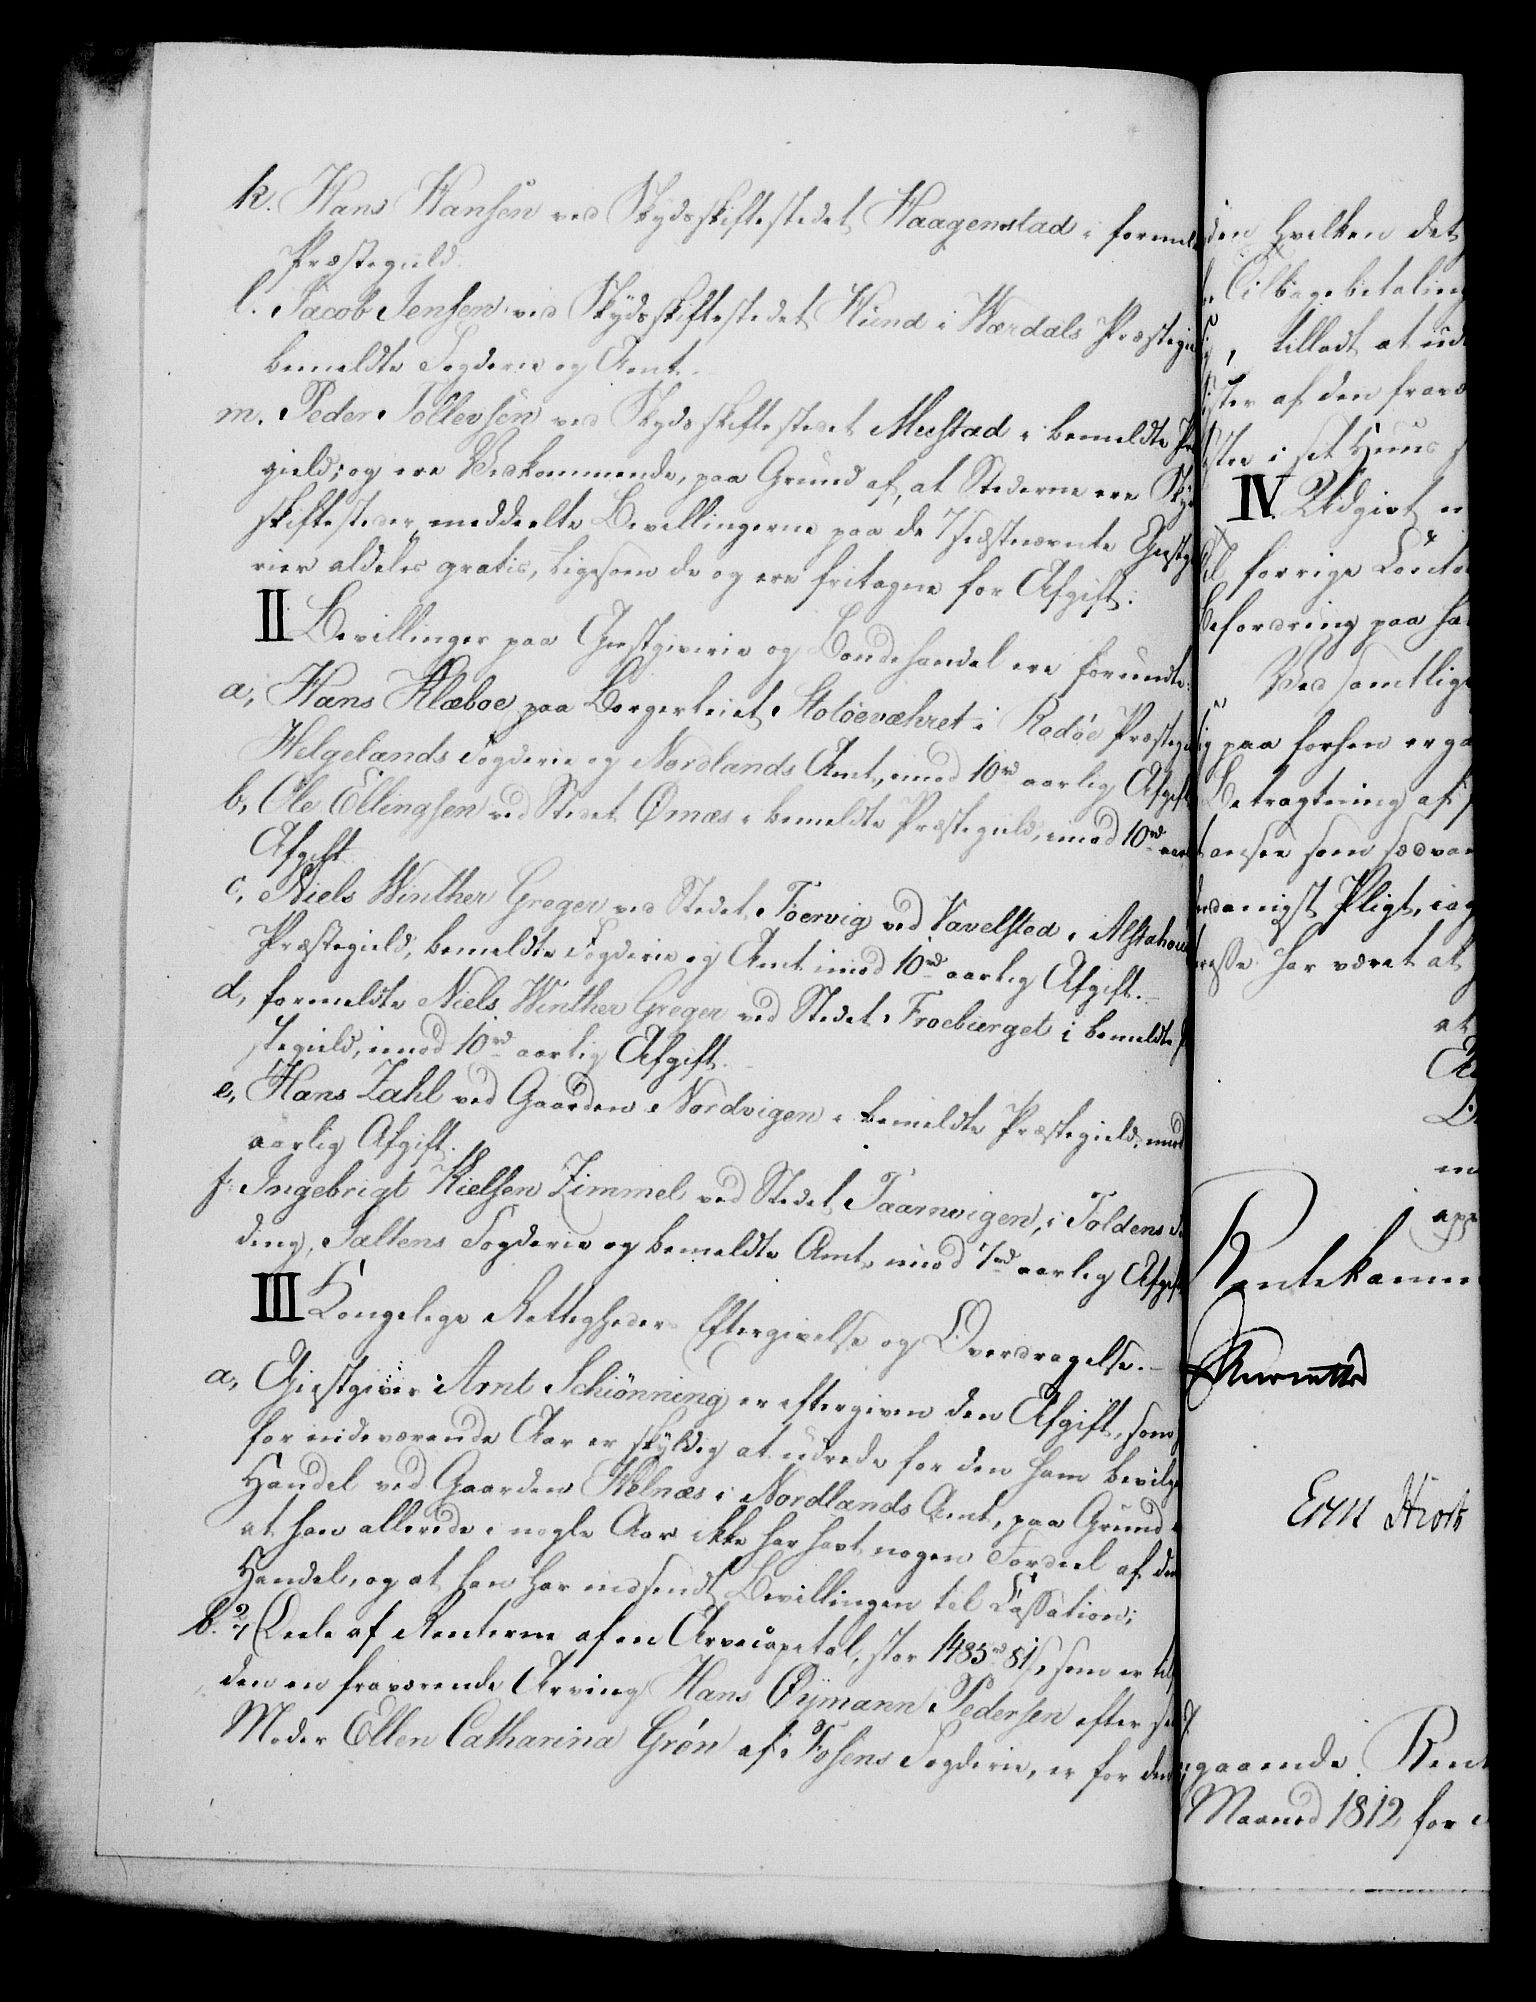 k. Hans Hansen ved Skydsskiftestedet Haagenstad i formel
Præstegield.
l. Jacob Jensen ved Skydsskiftestedet Hund i Wærdals Præstegi
bemeldte Fogderie og Amt.
m. Peder Tollevsen ved Skydsskiftestedet Mustad i bemeldte Præ
gield; og ere Vedkommende, paa Grund af, at Stederne ere Skyd
skiftesteder, meddeelte Bevillingerne paa de 7 sidstnævnte Giestgi
rier aldeles gratis, ligesom de og ere fritagne for Afgift.
II Bevillinger paa Giestgiverie og Bondehandel ere forundte:
a, Hans Klæboe paa Borgerleiet Stotöeværhret i Rodöe Præstegi
Helgelands Fogderie og Nordlands Amt, imod 10 rd aarlig Afgift
b, Ole Ellingsen ved Stedet Ørnæs i bemeldte Præstegield, imod 10 rd aarl
Afgift.
c, Niels Winther Greger ved Stedet Toervig ved Vavelsted i Alstahou
Præstegield, bemeldte Fogderie og Amt imod 10 rd aarlig Afgift.
d, formeldte Niels Winther Greger ved Stedet Froebierget i bemeldte P
stegield, imod 10 rd aarlig Afgift.
e, Hans Zahl ved Gaarden Nordvigen i bemeldte Præstegield, imod
aarlig Afgift.
f. Ingebrigt Nielsen Zimmel ved Stedet Taarnvigen, i Foldens
ding, Saltens Fogderie og bemeldte Amt, imod 7 rd aarlig Afgift
III Kongelige Rettigheders Eftergivelse og Overdragelse.
a, Giestgiver Arnt Schiönning er eftergiven den Afgift, som
for indeværende Aar er skyldig at udrede for den ham bevilg
Handel ved Gaarden Kielnæs i Nordlands Amt, paa Grund a
at han allerede i nogle Aar ikke har havt nogen Fordeel af den
Handel, og at han har indsendt Bevillingen til Cassation;
b. Deele af Renterne af en Arvecapital, stor 1485 rd 81 s, som er til
den en fraværende Arving Hans Øymann Pedersen efter si
Moder Ellen Catharina Grøn af Fosens Fogderie, er for den
den hvilken det
Tilbagebetaling
tilladt at ud
ster af den fravæ
ster i sit Huus
IV Udgivt er
forrige Contoi
Befordring paa ha
Ved samtlige
ig paa forhen erga
Betragtning af
ansee som sædvan
rdanigst Pligt, iag
resse har været at
at
Rentekamme
Erns Hiort
gaaende Rent
Maaned 1812 for